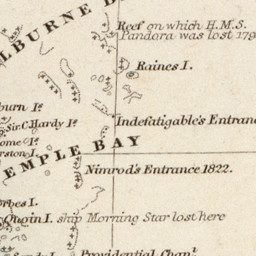 LBURNE B
Reef on which H.M.S.
Pandora was lost 179
Raines I.
burn Iˢ.
Sir C. Hardy Iˢ.
Indefatigable's Entranc
ome Iˢ.
rston I.
EMPLE BAY
Nimrod's Entrance 1822.
rbes I.
Quoin I. ship Morning Star lost here
Providential Chanˡ